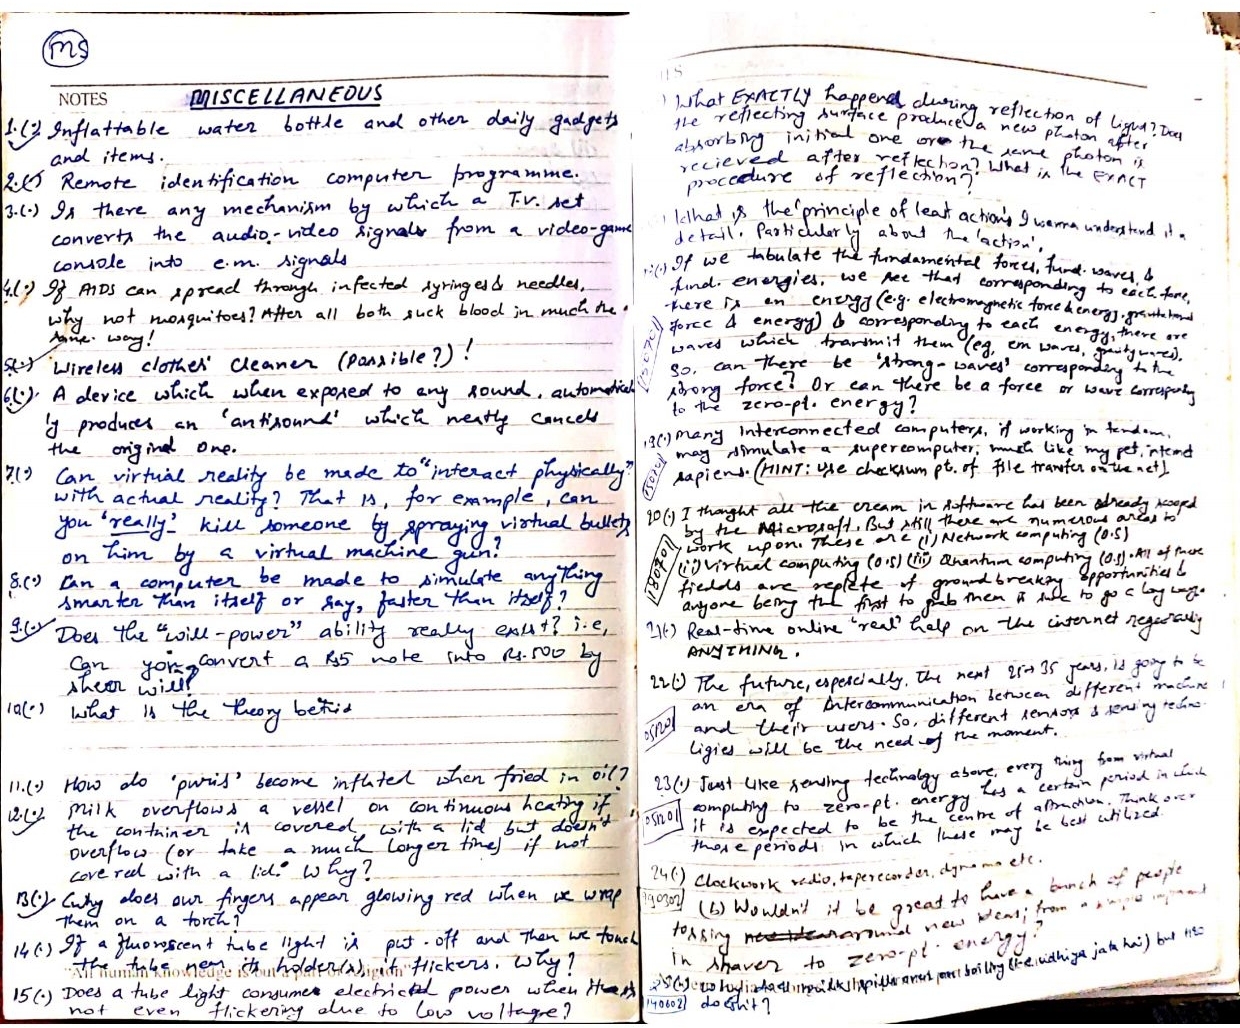 MS
NOTES
MISCELLANEOUS
1.(•) Inflattable water bottle and other daily gadgets
and items.
2.(•) Remote identification computer programme.
3.(•) Is there any mechanism by which a T.v. set
converts the audio-video signals from a video-game
console into e.m. signals
4.(•) If AIDS can spread through infected syringes & needles,
why not mosquitoes? After all both suck blood in much the
same way!
5.(•) Wireless clothes' cleaner (possible?)!
6.(•) A device which when exposed to any sound, automatical
ly produces an 'antisound' which neatly cancels
the original one.
7.(•) Can virtual reality be made to "interact physically"
with actual reality? That is, for example, can
you 'really' kill someone by spraying virtual bullets
on him by a virtual machine gun?
8.(•) Can a computer be made to simulate anything
smarter than itself or say, faster than itself?
9.(•) Does the "will-power" ability really exist? i.e,
Can you convert a Rs5 note into Rs.500 by
sheer will?
10.(•) What is the theory behind
11.(•) How do 'puris' become inflated when fried in oil?
12.(•) Milk overflows a vessel on continuous heating if
the container is covered with a lid but doesn't
overflow (or take a much longer time) if not
covered with a lid. Why?
13.(•) Why does our fingers appear glowing red when we wrap
them on a torch?
14.(•) If a fluorescent tube light is put-off and then we touch
the tube near its holder(s) it flickers. Why?
"All human knowledge is but a part of religion"
15.(•) Does a tube light consume electrical power when it is
not even flickering due to low voltage?
What EXACTLY happend during reflection of light? Does
the reflecting surface produce a new photon after
absorbing initial one or the same photon is
recieved after reflection? What is the EXACT
procedure of reflection?
What is the 'principle of least action'. I wanna understand it in
detail. Particularly about the 'action'.
If we tabulate the fundamental forces, fund. waves &
fund. energies, we see that corresponding to each force,
there is an energy (e.g. electromagnetic force & energy, gravitational
force & energy) & corresponding to each energy, there are
waves which transmit them (eg, em waves, gravity waves).
So, can there be 'strong-waves' corresponding to the
strong force? Or can there be a force or wave corresponding
to the zero-pt. energy?
19.(•) Many interconnected computers, if working in tandem,
may simulate a supercomputer, much like my pet,
sapiens. (HINT: Use checksum pt. of file transfer on the net)
20.(•) I thought all the cream in software has been already scooped
by the Microsoft. But still there are numerous areas to
work upon. These are (i) Network computing (O.S)
(ii) Virtual computing (O.S) (iii) Quantum computing (O.S). All of these
fields are replete of ground breaking opportunities &
anyone being the first to grab them is sure to go a long way.
21.(•) Real-time online 'real' help on the internet regarding
ANYTHING.
22.(•) The future, especially, the next 25→35 years, is going to be
an era of Intercommunication between different machine
and their users. So, different sensors & sensing techno-
ligies will be the need of the moment.
23.(•) Just like sensing technology above, every thing from virtual
computing to zero-pt. energy has a certain period in which
it is expected to be the centre of attraction. Think over
those periods in which these may be best utilized.
24.(•) Clockwork radio, taperecorder, dynamo etc.
(b) Wouldn't it be great to have a bunch of people
tossing around new ideas; from a simple
in shaver to zero-pt. energy?
25.(•) why does milk spills over on boiling but H2O
140602 doesn't?